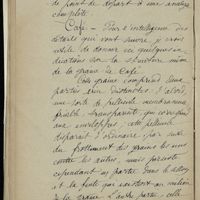 de point de départ à une analyse
complète.
Café – Pour l'intelligence des
détails qui vont suivre, je crois
utile de donner ici quelques in-
dications sur la structure même
de la graine de Café.
Cette graine comprend deux
parties bien distinctes. D'abord,
une sorte de pellicule membraneuse
friable, transparente, qui correspond
aux enveloppes; cette pellicule
disparaît d'ordinaire par suite
du frottement des grains les uns
contre les autres, mais persiste
cependant en partie dans le sillon
et la fente qui existent au milieu
de la graine. L'autre partie, celle